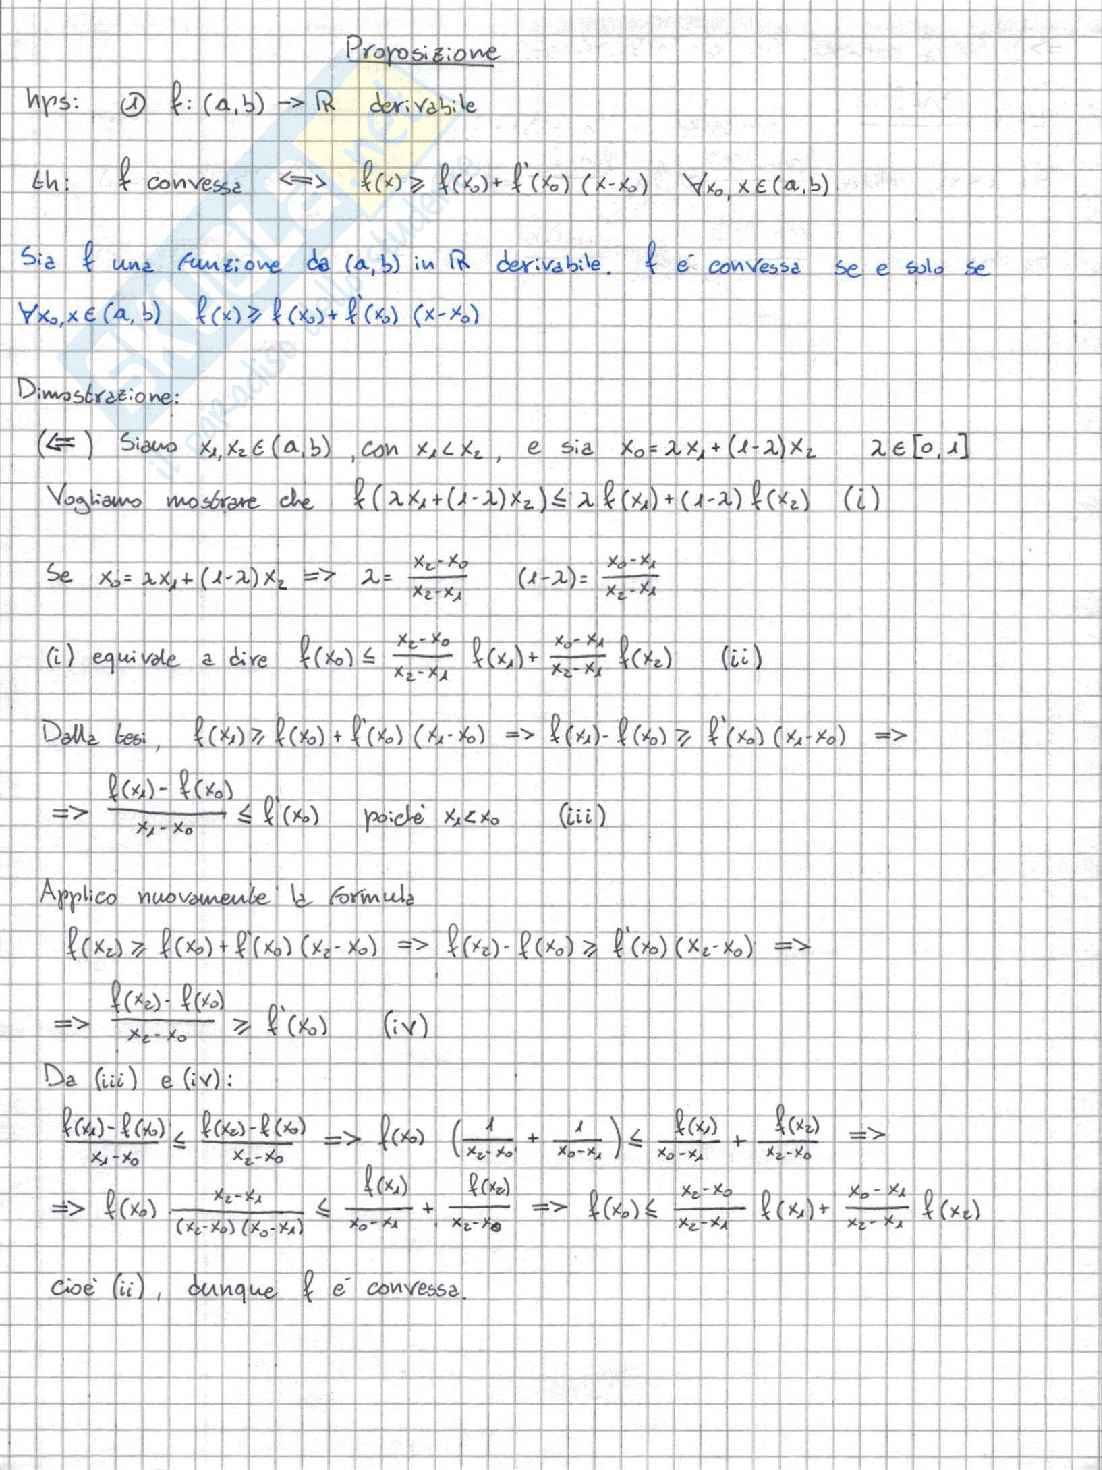 Proposizione
hps: ① f: (a,b) → ℝ derivabile
th: f convessa <=> f(x) ≥ f(x₀) + f'(x₀) (x-x₀) ∀x₀, x ∈ (a,b)
Sia f una funzione da (a,b) in ℝ derivabile. f è convessa se e solo se
∀x₀, x ∈ (a,b) f(x) ≥ f(x₀) + f'(x₀) (x-x₀)
Dimostrazione:
(<=) Siano x₁, x₂ ∈ (a,b), con x₁ < x₂, e sia x₀ = λx₁ + (1-λ)x₂ λ ∈ [0,1]
Vogliamo mostrare che f(λx₁ + (1-λ)x₂) ≤ λ f(x₁) + (1-λ) f(x₂) (i)
Se x₀ = λx₁ + (1-λ)x₂ => λ = (x₂-x₀)/(x₂-x₁) (1-λ) = (x₀-x₁)/(x₂-x₁)
(i) equivale a dire f(x₀) ≤ (x₂-x₀)/(x₂-x₁) f(x₁) + (x₀-x₁)/(x₂-x₁) f(x₂) (ii)
Dalla tesi, f(x₁) ≥ f(x₀) + f'(x₀) (x₁-x₀) => f(x₁) - f(x₀) ≥ f'(x₀) (x₁-x₀) =>
=> (f(x₁) - f(x₀))/(x₁-x₀) ≤ f'(x₀) poiché x₁ < x₀ (iii)
Applico nuovamente la formula
f(x₂) ≥ f(x₀) + f'(x₀) (x₂-x₀) => f(x₂) - f(x₀) ≥ f'(x₀) (x₂-x₀) =>
=> (f(x₂) - f(x₀))/(x₂-x₀) ≥ f'(x₀) (iv)
Da (iii) e (iv):
(f(x₁) - f(x₀))/(x₁-x₀) ≤ (f(x₂) - f(x₀))/(x₂-x₀) => f(x₀) (1/(x₂-x₀) + 1/(x₀-x₁)) ≤ f(x₁)/(x₀-x₁) + f(x₂)/(x₂-x₀) =>
=> f(x₀) (x₂-x₁)/((x₂-x₀)(x₀-x₁)) ≤ f(x₁)/(x₀-x₁) + f(x₂)/(x₂-x₀) => f(x₀) ≤ (x₂-x₀)/(x₂-x₁) f(x₁) + (x₀-x₁)/(x₂-x₁) f(x₂)
cioè (ii), dunque f è convessa.
SKUOLA.net
il paradiso dello studente